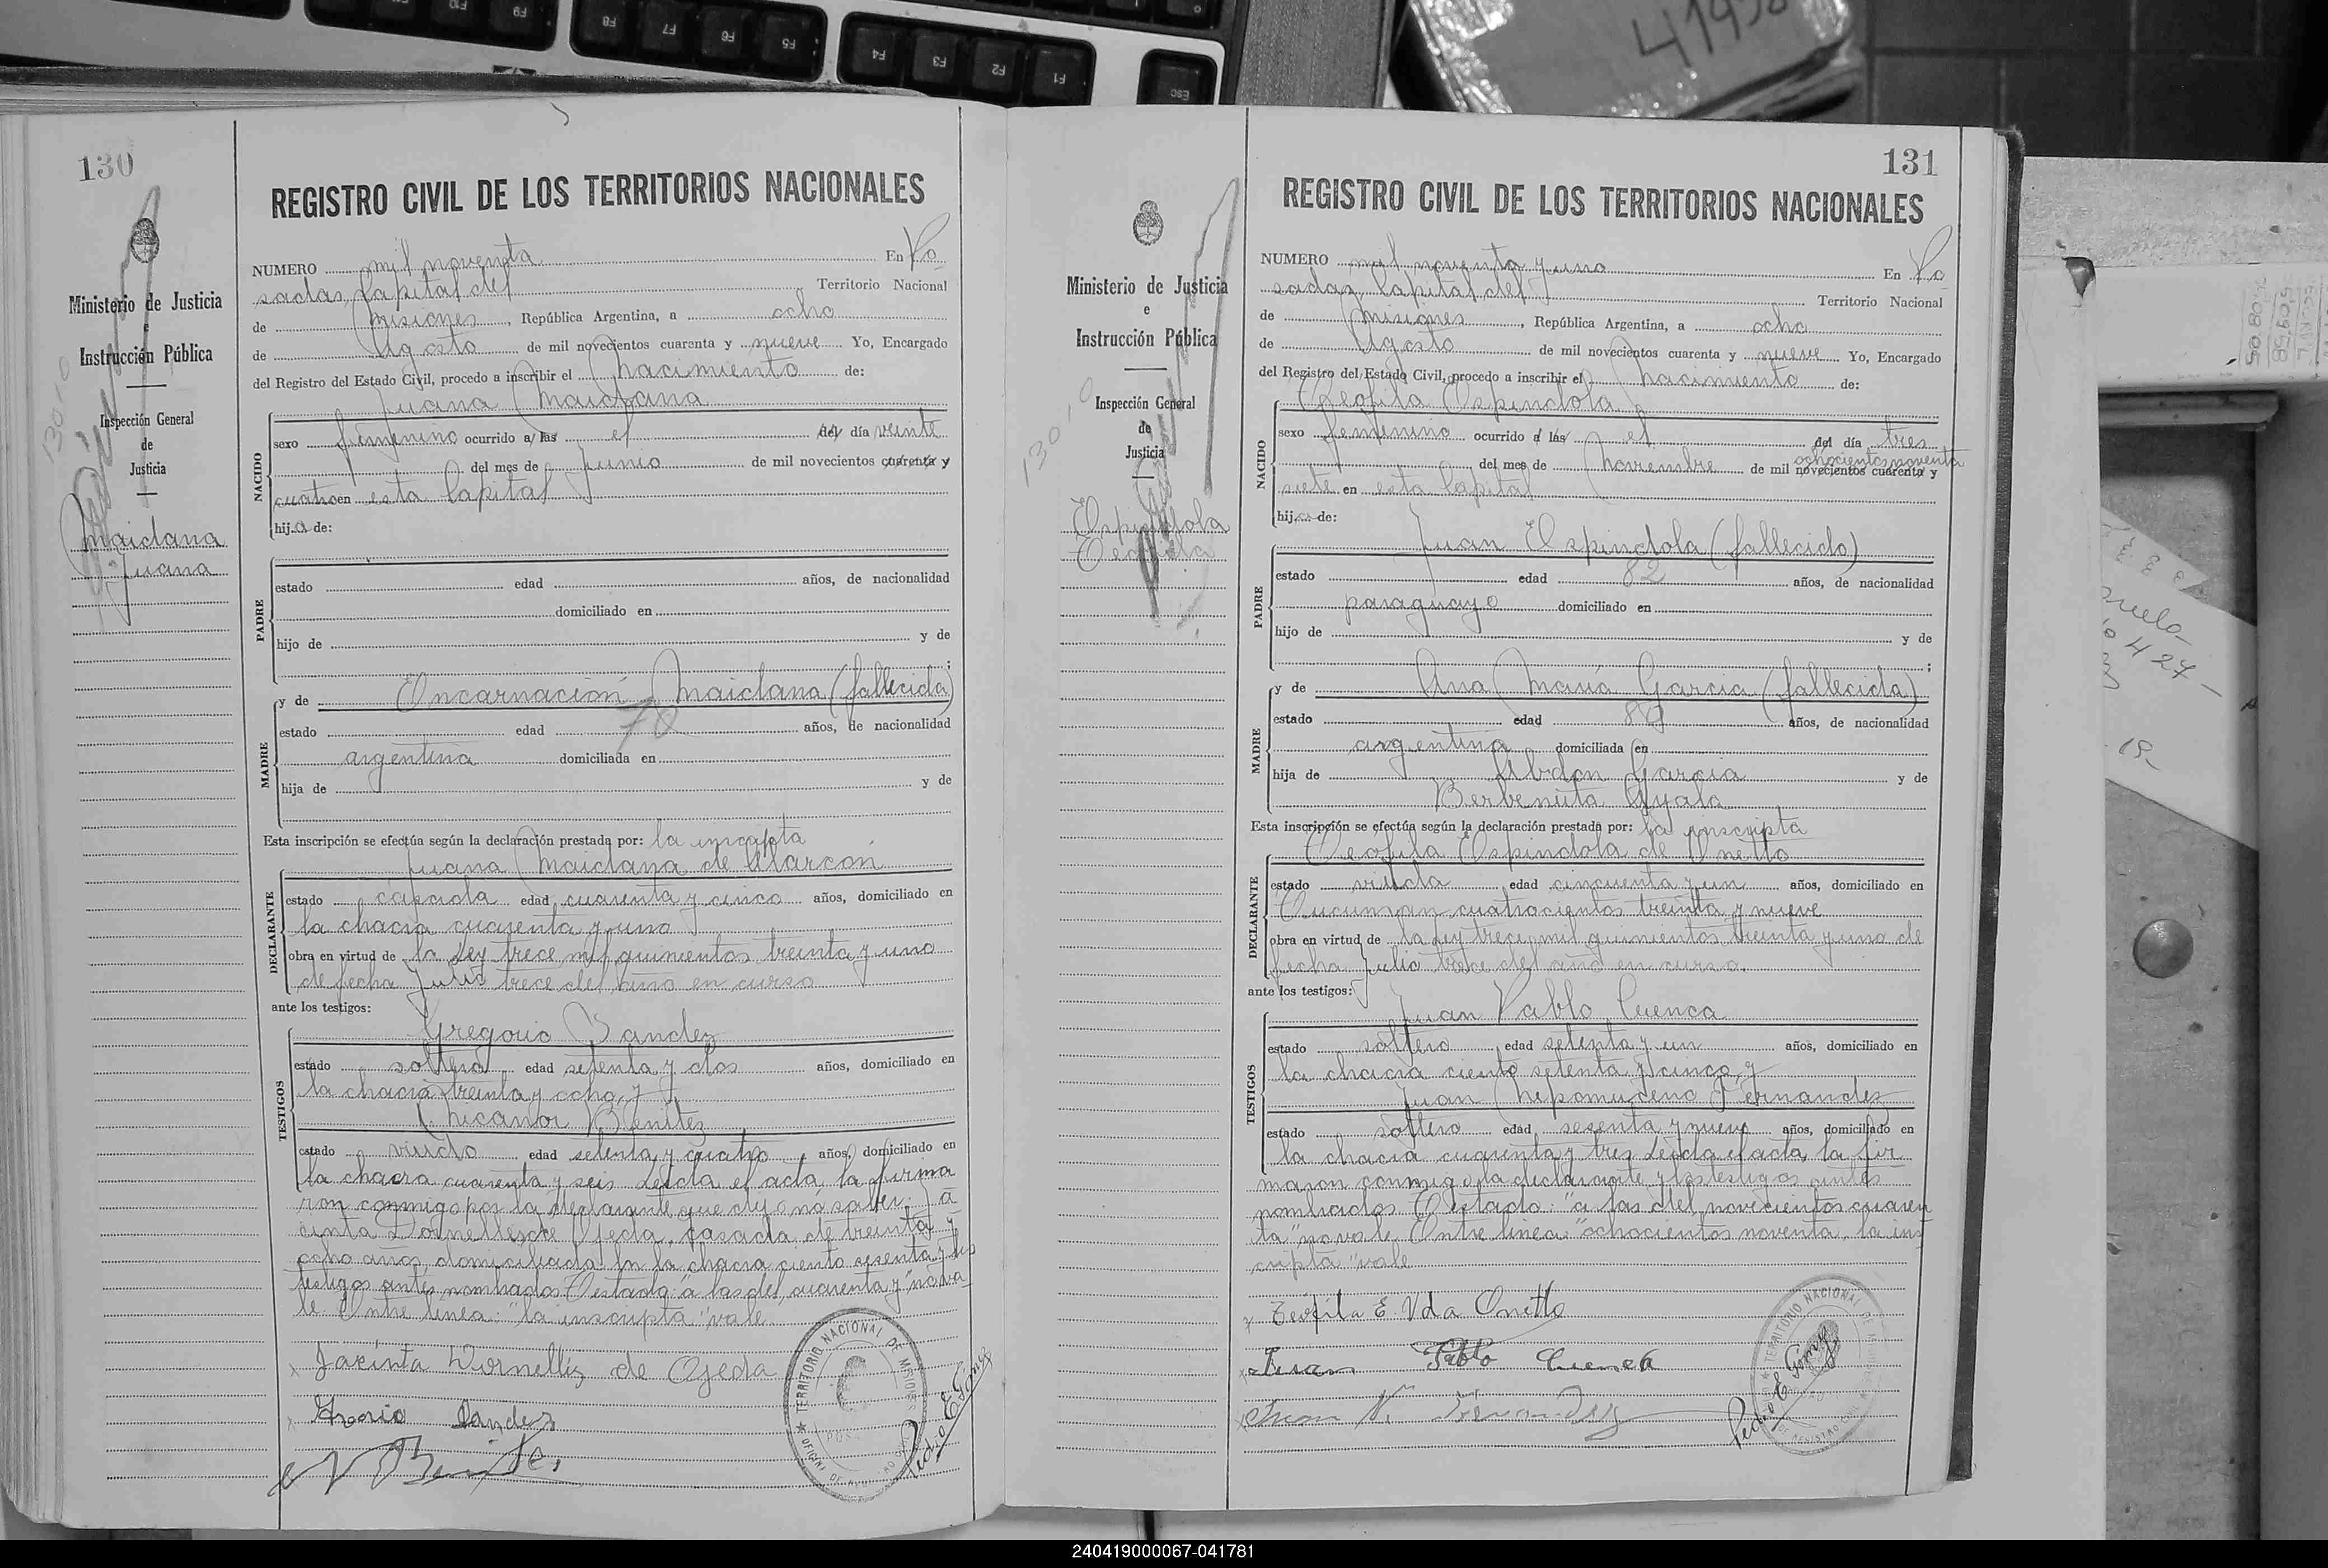 F10
F9
F8
F7
F6
F5
F4
F3
F2
F1
Esc
130
REGISTRO CIVIL DE LOS TERRITORIOS NACIONALES
Ministerio de Justicia
e
Instrucción Pública
Inspección General
de
Justicia
Maidana
Juana
NUMERO mil noventa En Po
sadas, Capital del Territorio Nacional
de Misiones, República Argentina, a ocho
de Agosto de mil novecientos cuarenta y nueve Yo, Encargado
del Registro del Estado Civil, procedo a inscribir el nacimiento de:
Juana Maidana
NACIDO
sexo femenino ocurrido a las el del día veinte
del mes de Junio de mil novecientos cuarenta y
cuatro en esta Capital
hija de:
PADRE
estado edad años, de nacionalidad
domiciliado en
hijo de y de
;
MADRE
y de Encarnación Maidana (fallecida)
estado edad 70 años, de nacionalidad
argentina domiciliada en
hija de y de
Esta inscripción se efectúa según la declaración prestada por: la inscripta
Juana Maidana de Alarcón
DECLARANTE
estado casada edad cuarenta y cinco años, domiciliado en
la chacra cuarenta y uno
obra en virtud de la Ley trece mil quinientos treinta y uno
de fecha Julio trece del año en curso
ante los testigos:
TESTIGOS
Gregorio Sandez
estado soltero edad setenta y dos años, domiciliado en
la chacra treinta y ocho, y
Nicanor Benítez
estado viudo edad setenta y cuatro años, domiciliado en
la chacra cuarenta y seis Leída el acta, la firma
ron conmigo por la declarante que dijo nó saber: Ja
cinta Dornelles de Ojeda, casada, de treinta y
ocho años, domiciliada en la chacra ciento sesenta y los
testigos antes nombrados Testado: "a las del, cuarenta y" no va
le. Entre linea: "la inscripta" vale.
Jacinta Dornelliz de Ojeda
Sandez
N Benitez
TERRITORIO NACIONAL DE MISIONES
Pedro E Gomez
131
REGISTRO CIVIL DE LOS TERRITORIOS NACIONALES
Ministerio de Justicia
e
Instrucción Pública
Inspección General
de
Justicia
Espindola
Teofila
NUMERO mil noventa y uno En Po
sadas, Capital del Territorio Nacional
de Misiones, República Argentina, a ocho
de Agosto de mil novecientos cuarenta y nueve Yo, Encargado
del Registro del Estado Civil, procedo a inscribir el nacimiento de:
Teofila Espindola
NACIDO
sexo femenino ocurrido a las el del día tres
ochocientos noventa
del mes de Noviembre de mil novecientos cuarenta y
siete en esta Capital
hija de:
PADRE
Juan Espindola (fallecido)
estado edad 82 años, de nacionalidad
paraguayo domiciliado en
hijo de y de
;
MADRE
y de Ana María Garcia (fallecida)
estado edad 80 años, de nacionalidad
argentina domiciliada en
hija de Abdon Garcia y de
Berbenuta Ayala
Esta inscripción se efectúa según la declaración prestada por: la inscripta
Teofila Espindola de Onetto
DECLARANTE
estado viuda edad cincuenta y un años, domiciliado en
Tucuman cuatrocientos treinta y nueve
obra en virtud de la Ley trece mil quinientos treinta y uno de
fecha Julio trece del año en curso.
ante los testigos:
TESTIGOS
Juan Pablo Cuenca
estado soltero edad setenta y un años, domiciliado en
la chacra ciento setenta y cinco, y
Juan Nepomuceno Fernandez
estado soltero edad sesenta y nueve años, domiciliado en
la chacra cuarenta y tres Leída el acta, la fir
maron conmigo la declarante y los testigos antes
nombrados Testado: "a las del novecientos cuaren
ta" no vale. Entre linea: "ochocientos noventa, la ins
cripta" vale
Teofila E. Vda Onetto
Juan Pablo Cuenca
Juan N. Fernandez
TERRITORIO NACIONAL DE
Pedro E Gomez
240419000067-041781